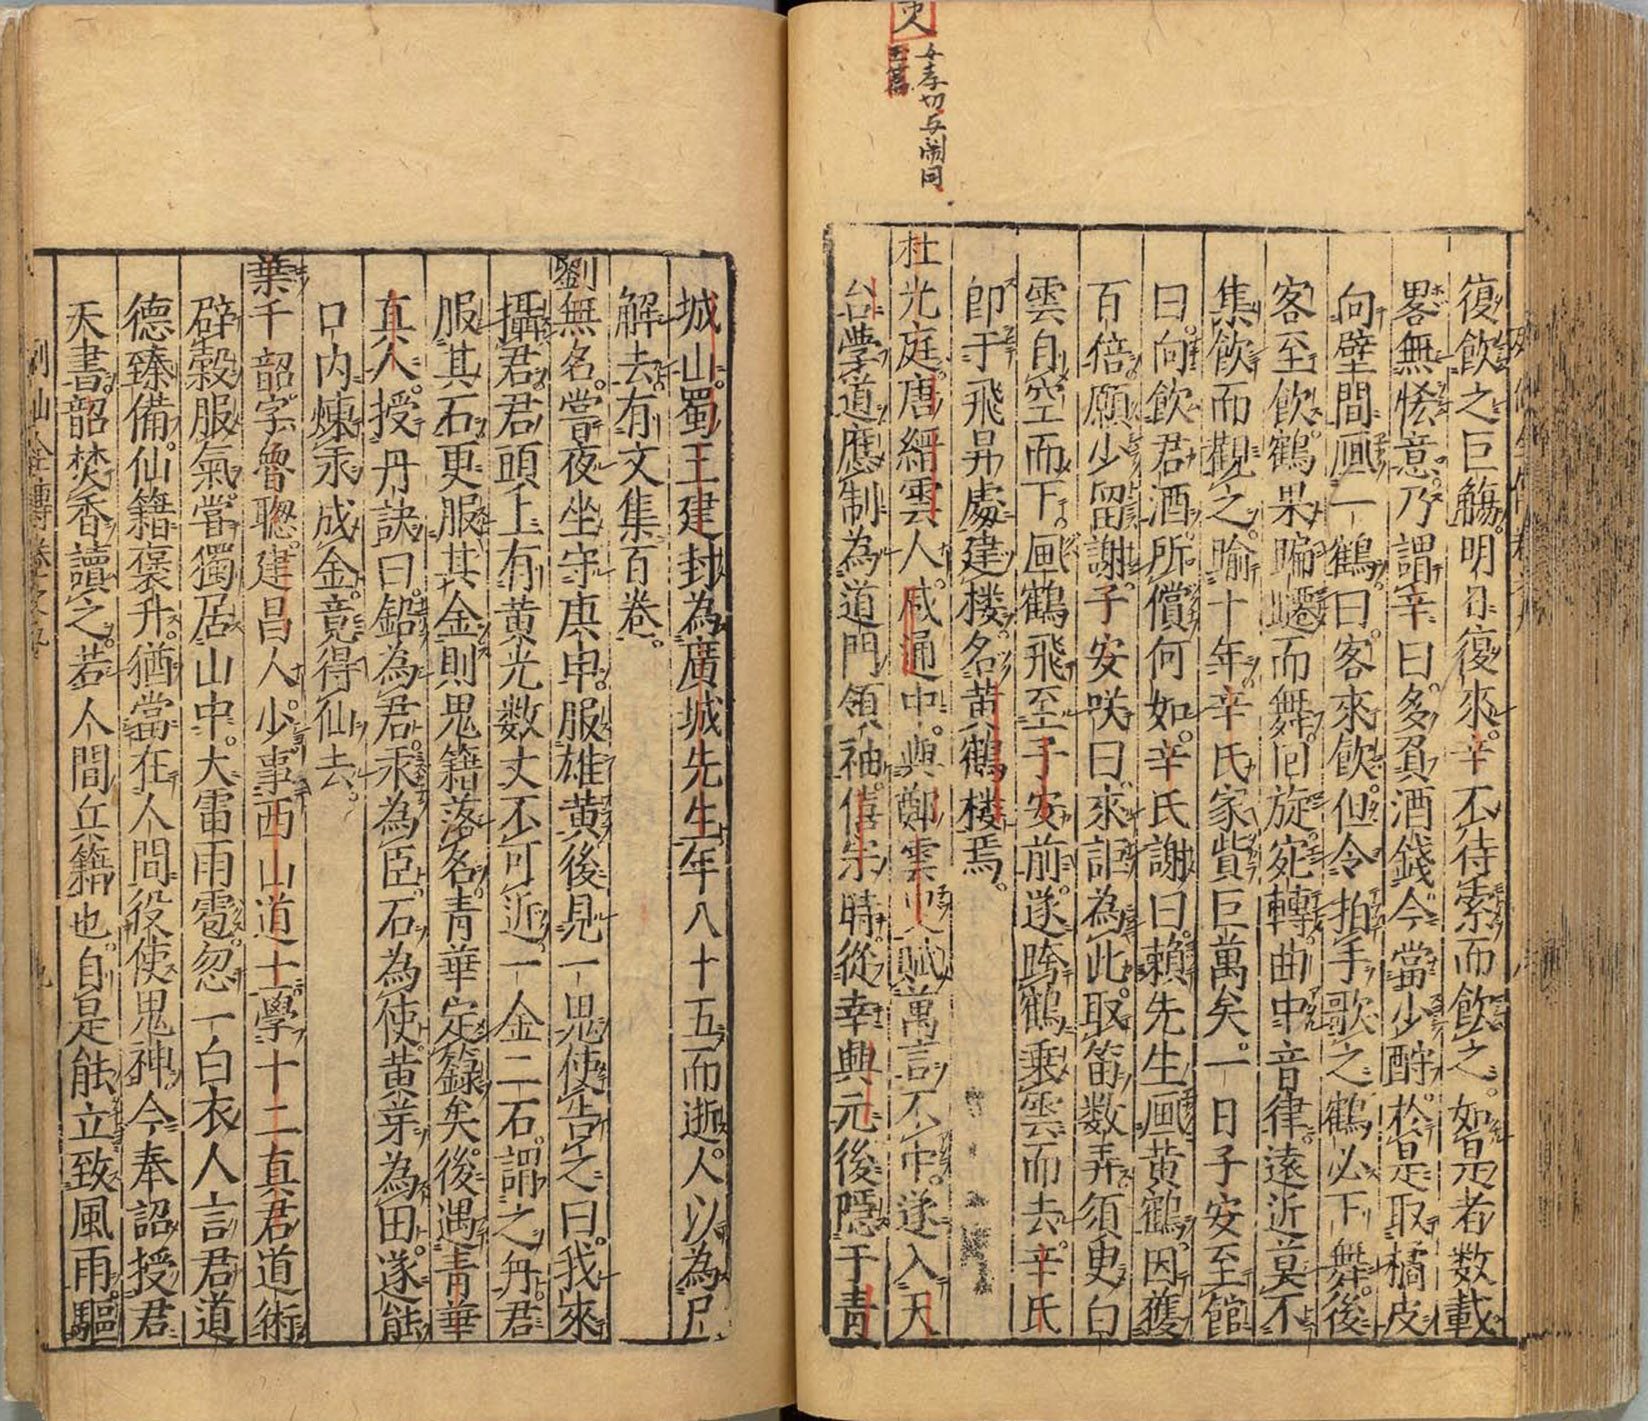 女孝切与鬧同
玉篇
復飲之巨觴明日復來辛不待索而飲之如是者数載
畧無恡意乃謂辛曰多負酒錢今當少酧於是取橘皮
向壁間画一鶴曰客來飲但令拍手歌之鶴必下舞後
客至飲鶴果蹁躚而舞回旋宛轉曲中音律遠近莫不
集飲而觀之踰十年辛氏家貲巨萬矣一日子安至館
曰向飲君酒所償何如辛氏謝曰賴先生画黄鶴因獲
百倍願少留謝子安咲曰來詎為此取笛数弄須臾白
雲自空而下画鶴飛至子安前遂跨鶴乗雲而去辛氏
即于飛昇處建楼名黄鶴楼焉
杜光庭唐縉雲人咸通中與鄭雲叟賦萬言不中遂入天
台學道應制為道門領袖僖宗時從幸興元後隱于青
城山蜀王建封為廣城先生年八十五而逝人以為尸
解去有文集百卷
劉無名嘗夜坐守庚申服雄黄後見一鬼使告之曰我來
攝君君頭上有黄光数丈不可近一金二石謂之丹君
服其石更服其金則鬼籍落名青華定籙矣後遇青華
真人授丹訣曰鉛為君汞為臣石為使黄芽為田遂能
口内煉汞成金竟得仙去
葉千韶字魯聰建昌人少事西山道士學十二真君道術
辟穀服氣當獨居山中大雷雨雹忽一白衣人言君道
德臻備仙籍褒升猶當在人間役使鬼神今奉詔授君
天書韶焚香讀之若人間兵籍也自是能立致風雨驅
列仙全傳卷之五
九